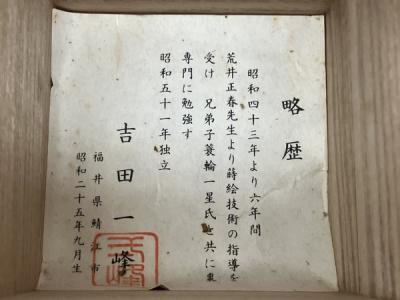 略歴
昭和四十三年より六年間
荒井正春先生より蒔絵技術の指導を
受け 兄弟子蓑輪一星氏と共に裏
専門に勉強す
昭和五十一年独立
吉田一峰
福井県鯖江市
昭和二十五年九月生